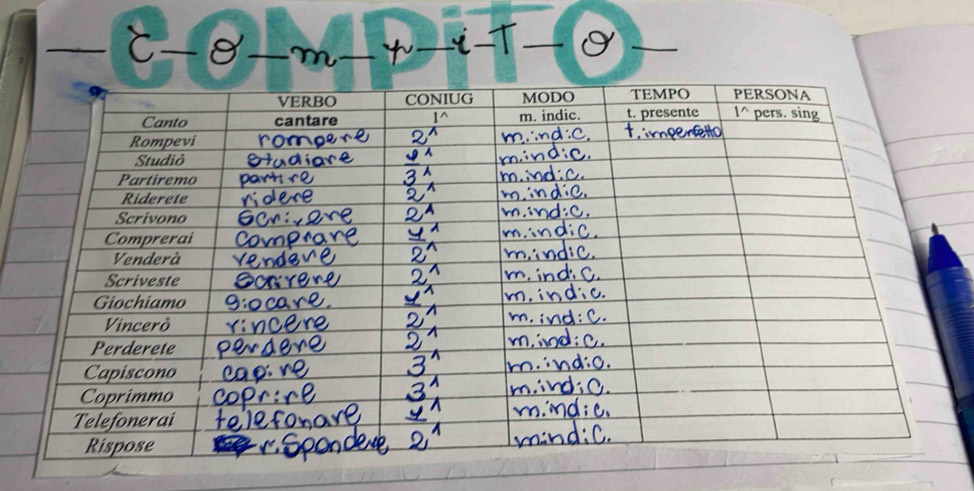 COMPiTO
C-O-m-p-i-T-O
VERBO CONIUG MODO TEMPO PERSONA
Canto cantare 1^ m. indic. t. presente 1^ pers. sing
Rompevi rompere 2^ m.indic. t.imperfetto
Studiò studiare 1^ m.indic.
Partiremo partire 3^ m.indic.
Riderete ridere 2^ m.indic.
Scrivono scrivere 2^ m.indic.
Comprerai comprare 1^ m.indic.
Venderà vendere 2^ m.indic.
Scriveste scrivere 2^ m.indic.
Giochiamo giocare. 1^ m.indic.
Vincerò vincere 2^ m.indic.
Perderete perdere 2^ m.indic.
Capiscono capire 3^ m.indic.
Coprimmo coprire 3^ m.indic.
Telefonerai telefonare 1^ m.indic.
Rispose rispondere 2^ m.indic.